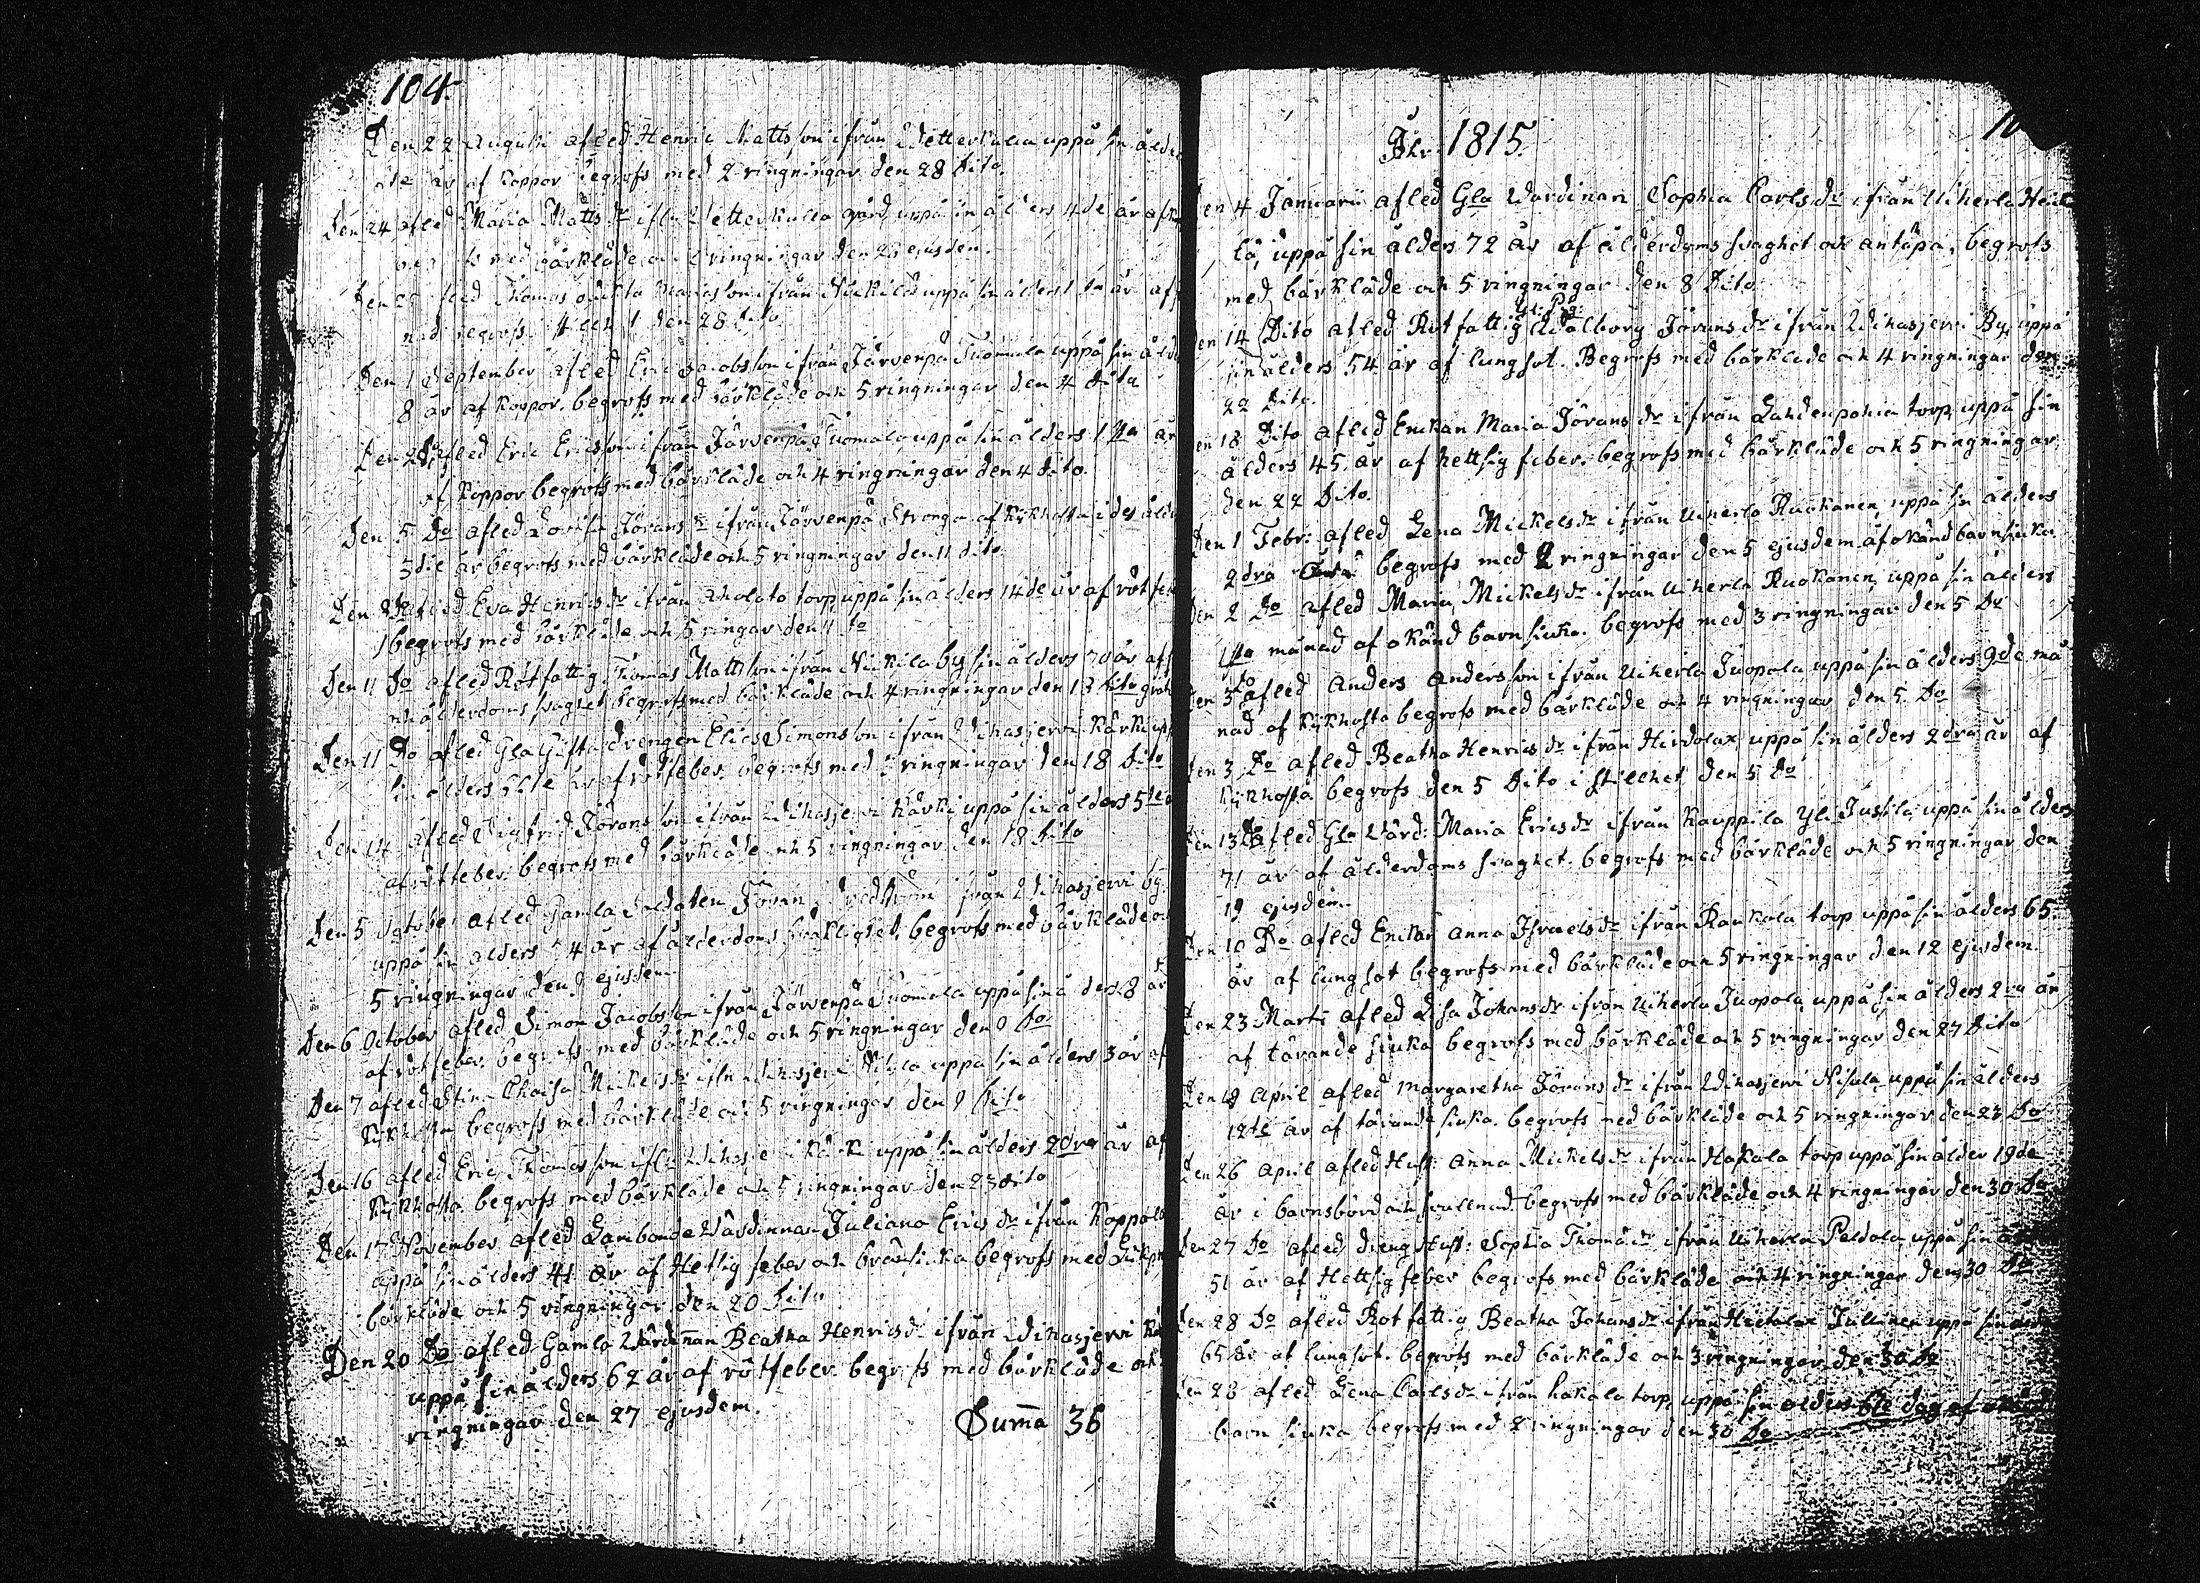 104.
Den 22 Augusti afled Henric Mattsson ifrån Wetterkulla uppå sin ålders
år af koppor begrofs med 2 ringningar den 28 Dito.
Den 24 afled Maria Matts dr ifrån Wetterkulla gård uppå sin ålders 4de år af
med bårkläde och ringningar den 28 ejusdem.
Den afled Thomas ifrån Nickilä uppå sin ålders år af
begrofs den 28 Dito
Den 1 September afled Eric Jacobsson ifrån Järvenpä Tuomala uppå sin ålders
8 år af koppor. begrofs med bårkläde och 5 ringningar den 4 Dito
Den 2 Do afled Eric Ericsson ifrån Järvenpä Tuomala uppå sin ålders 1sta år
af koppor begrofs med bårkläde och 4 ringningar den 4 Dito
Den 5 Do afled Lovisa Jörans dr ifrån Järvenpä Stronga af kikhosta i des ålders
3die år begrofs med bårkläde och 5 ringningar den 11 Dito
Den 8 Do afled Eva Henrics dr ifrån Aholato torp, uppå sin ålders 14de år af rötfeb
begrofs med bårkläde och 5 ringar den 11 Do
Den 11 Do afled Rotfattig Thomas Mattsson ifrån Nickilä by sin ålders 70 år af
ålderdoms svaghet begrofs med bårkläde och 4 ringningar den 18 Dito
Den 11 Do afled Gla Gifta drengen Elias Simonsson ifrån Wihasjerwi Kärki upp
sin ålders år af rötfeber. begrofs med ringningar den 18 Dito
Den 14 afled Sigfrid Jöransson ifrån Wihasjerwi Kärki uppå sin ålders 5te
af rötfeber. begrofs med bårkläde och 5 ringningar den 18 Dito
Den 5 October afled Gamla Soldaten Jöran ifrån Wihasjerwi by.
uppå sin ålders 4 år af ålderdoms svaklighet. begrofs med bårkläde och
5 ringningar den 9 ejusdem
Den 6 October afled Simon Jacobsson ifrån Järvenpä Tuomala uppå sin ålders 8 år
af rötfeber. begrofs med bårkläde och 5 ringningar den 9 Do
Den 7 afled Stina Chaisa Mickels dr ifrån Wihasjerwi Nisula uppå sin ålders 3 år af
kikhosta begrofs med bårkläde och 5 ringningar den 9 Dito
Den 16 afled Eric Thomasson ifrån Wihasjerwi Kärki uppå sin ålders 2dra år af
kikhosta. begrofs med bårkläde och 5 ringningar den 23 Dito
Den 17 November afled Lanbonde Wärdinnan Juliana Erics dr ifrån Koppola
uppå sin ålders 41 år af Hetsig feber och bränsiuka begrofs med
bårkläde och 5 ringningar den 20 Dito
Den 20 Do afled Gamla Wärdinnan Beatha Henrics dr ifrån Wihasjerwi
uppå sin ålders 62 år af rötfeber. begrofs med bårkläde och
ringningar den 27 ejusdem.
Summa 36
Åhr 1815.
Den 4 Januarii afled Gla Wardinan Sophia Carls dr ifrån Uiherla Heik
lä, uppå sin ålders 72 år af ålderdoms svaghet och antäpa, begrofs
med bårkläde och 5 ringningar den 8 Dito
Den 14 Dito afled Rotfattig Walborg Jörans dr ifrån Wihasjerwi By, uppå
sin ålders 54 år af lungsot. Begrofs med bårkläde och 4 ringningar den
22 Dito.
Den 18 Dito afled Enckan Maria Jörans dr ifrån Lahdenpohia torp, uppå sin
ålders 45 år af hettsig feber. begrofs med bårkläde och 5 ringningar
den 22 Dito.
Den 1 Febr: afled Lena Mickels dr ifrån Uiherla Ruokanen, uppå sin ålders
2dra begrofs med 2 ringningar den 5 ejusdem af okänd barnsiuka
Den 2 Do afled Maria Mickels dr ifrån Uiherla Ruokanen, uppå sin ålders
1sta månad af okänd barnsiuka. begrofs med 3 ringningar den 5 Do
Den 3 Do afled Anders Andersson ifrån Uiherla Juopola uppå sin ålders 9de må
nad af kikhosta begrofs med bårkläde och 4 ringningar den 5 Do
Den 3 Do afled Beatha Henrics dr ifrån Hirdolax uppå sin ålders 2dra år af
kikhosta begrofs den 5 Dito i stillhet den 5 Do
Den 13 Do afled Gla Värd: Maria Erics dr ifrån Kauppila Yli Jussila uppå sin ålders
71 år af ålderdoms svaghet. begrofs med bårkläde och 5 ringningar den
19 ejusdem.
Den 10 Do afled Enckan Anna Israels dr ifrån Raukola torp uppå sin ålders 65
år af lungsot begrofs med bårkläde och 5 ringningar den 12 ejusdem
Den 23 Marti afled Lisa Johans dr ifrån Uiherla Juopola, uppå sin ålders 2dra år
af tärande siuka begrofs med bårkläde och 5 ringningar den 27 Dito
Den 19 April afled Margaretha Jörans dr ifrån Wihasjerwi Nisula uppå sin ålders
12te år af tärande siuka. begrofs med bårkläde och 5 ringningar den 23 Do
Den 26 April afled Hust: Anna Mickels dr ifrån Hakala torp uppå sin ålder 19de
år i barnsbörd och svullnad. begrofs med bårkläde och 4 ringningar den 30 Do
Den 27 Do afled drengHust: Sophia Thomæ dr ifrån Uiherla Peldola, uppå sin
51 år af Hettsig feber begrofs med bårkläde och 4 ringningar den 30 Do
Den 28 Do afled Rotfattig Beatha Johans dr ifrån Hietolax Jullinen uppå sin
65 år af lungsot. begrofs med bårkläde och 3 ringningar den 30 Do
Den 28 afled Lena Carls dr ifrån hakala torp, uppå sin ålders 6te dag af
barn siuka begrofs med 2 ringningar den 30 Do